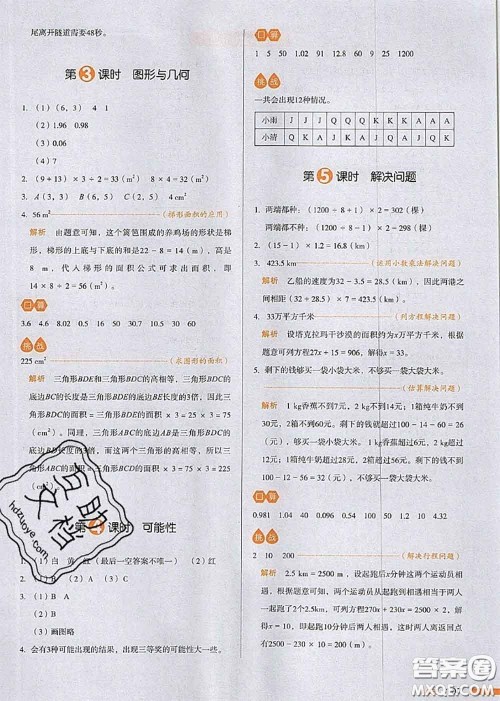 尾离开隧道需要48秒。
第3课时 图形与几何
1. (1)(6, 3) 4 1
(2) 1.96 0.98
(3) 0.06
(4) 7
2. (9 + 13) × 3 ÷ 2 = 33 (m²)
3. A (3, 5) B (6, 5) C (2, 5) 4 cm²
4. 56 m² (梯形面积的应用)
解析 由题意可知，这个篱笆围成的养鸡场的形状是梯
形，梯形的上底与下底的和是22 − 8 = 14 (m)，高是
8 m，代入梯形的面积公式可求出面积，即
14 × 8 ÷ 2 = 56 (m²)。
口算
3.6 4.6 8.08 10.7 50 18 30.9 10.5 15 60
挑战
225 cm² (求图形的面积)
解析 三角形BDE和三角形BDC的高相等，三角形BDE的
底边BC的长度是三角形BDC的底边长度的3倍，因此三
角形BDE的面积是三角形BDC的面积 × 3 = 25 × 3 = 75
(cm²)。同理，三角形ABC的底边AB是三角形BDC的
底边BD长度的3倍，而这两个三角形的高相等，所以三
角形ABC的面积 = 三角形BDC的面积 × 3 = 75 × 3 = 225
(cm²)。
第4课时 可能性
1. (1) 白 黄 红 (最后一空答案不唯一) (2) 红
(3) 画图略
4. 会有3种可能出现的结果，出现三等奖的可能性大一些。
口算
1 5 50 1.02 91 12.99 2 63 5 120
挑战
一共会出现12种情况。
小雨 J J J Q Q Q K K K A A A
小清 Q K A J K A J Q A J Q K
第5课时 解决问题
1. 两端都种：(1200 ÷ 8 + 1) × 2 = 302 (棵)
两端不种：(1200 ÷ 8 − 1) × 2 = 298 (棵)
2. (15 − 1) × 1.2 = 16.8 (m)
3. 423.5 km (运用小数乘法解决问题)
解析 乙船的速度为32 − 3.5 = 28.5 (km)，因此两谐
之间相距(32 + 28.5) × 7 = 423.5 (km)。
4. 33万平方千米 (列方程解决问题)
解析 设塔克拉玛干沙漠的面积约为x万平方千米，根据
题意可列方程27x + 15 = 906，解得x = 33。
5. 剩下的钱够买一袋小袋大米，不够买一袋大袋大米。
(估算解决问题)
解析 1 kg香蕉不到7元，2 kg不超过14元；1箱纯牛奶不到
30元，2箱不超过60元，剩下的钱就超过100 − 14 − 60 =
26 (元)，够买一袋小袋大米。1 kg香蕉超过6元，2 kg超
过12元；1箱纯牛奶超过28元，2箱超过56元。剩下的钱不到
100 − 12 − 56 = 32 (元)，不够买一袋大袋大米。
口算
0.981 1.04 0.98 1.44 0.54 100 50 1.2 0.1 4.32
挑战
2 10 200 (解决行程问题)
解析 2.5 km = 2500 m，设起跑后x分钟这两个运动员相
遇。根据题意可知，两个运动员从起跑到相遇相当于两人
一起跑了2个2.5km，可列方程270x + 230x = 2500 × 2，
解得x = 10，即起跑后10分钟两人相遇，两人离返回点
有2500 − 230 × 10 = 200 (m)。
答案圈
MXQE.COM